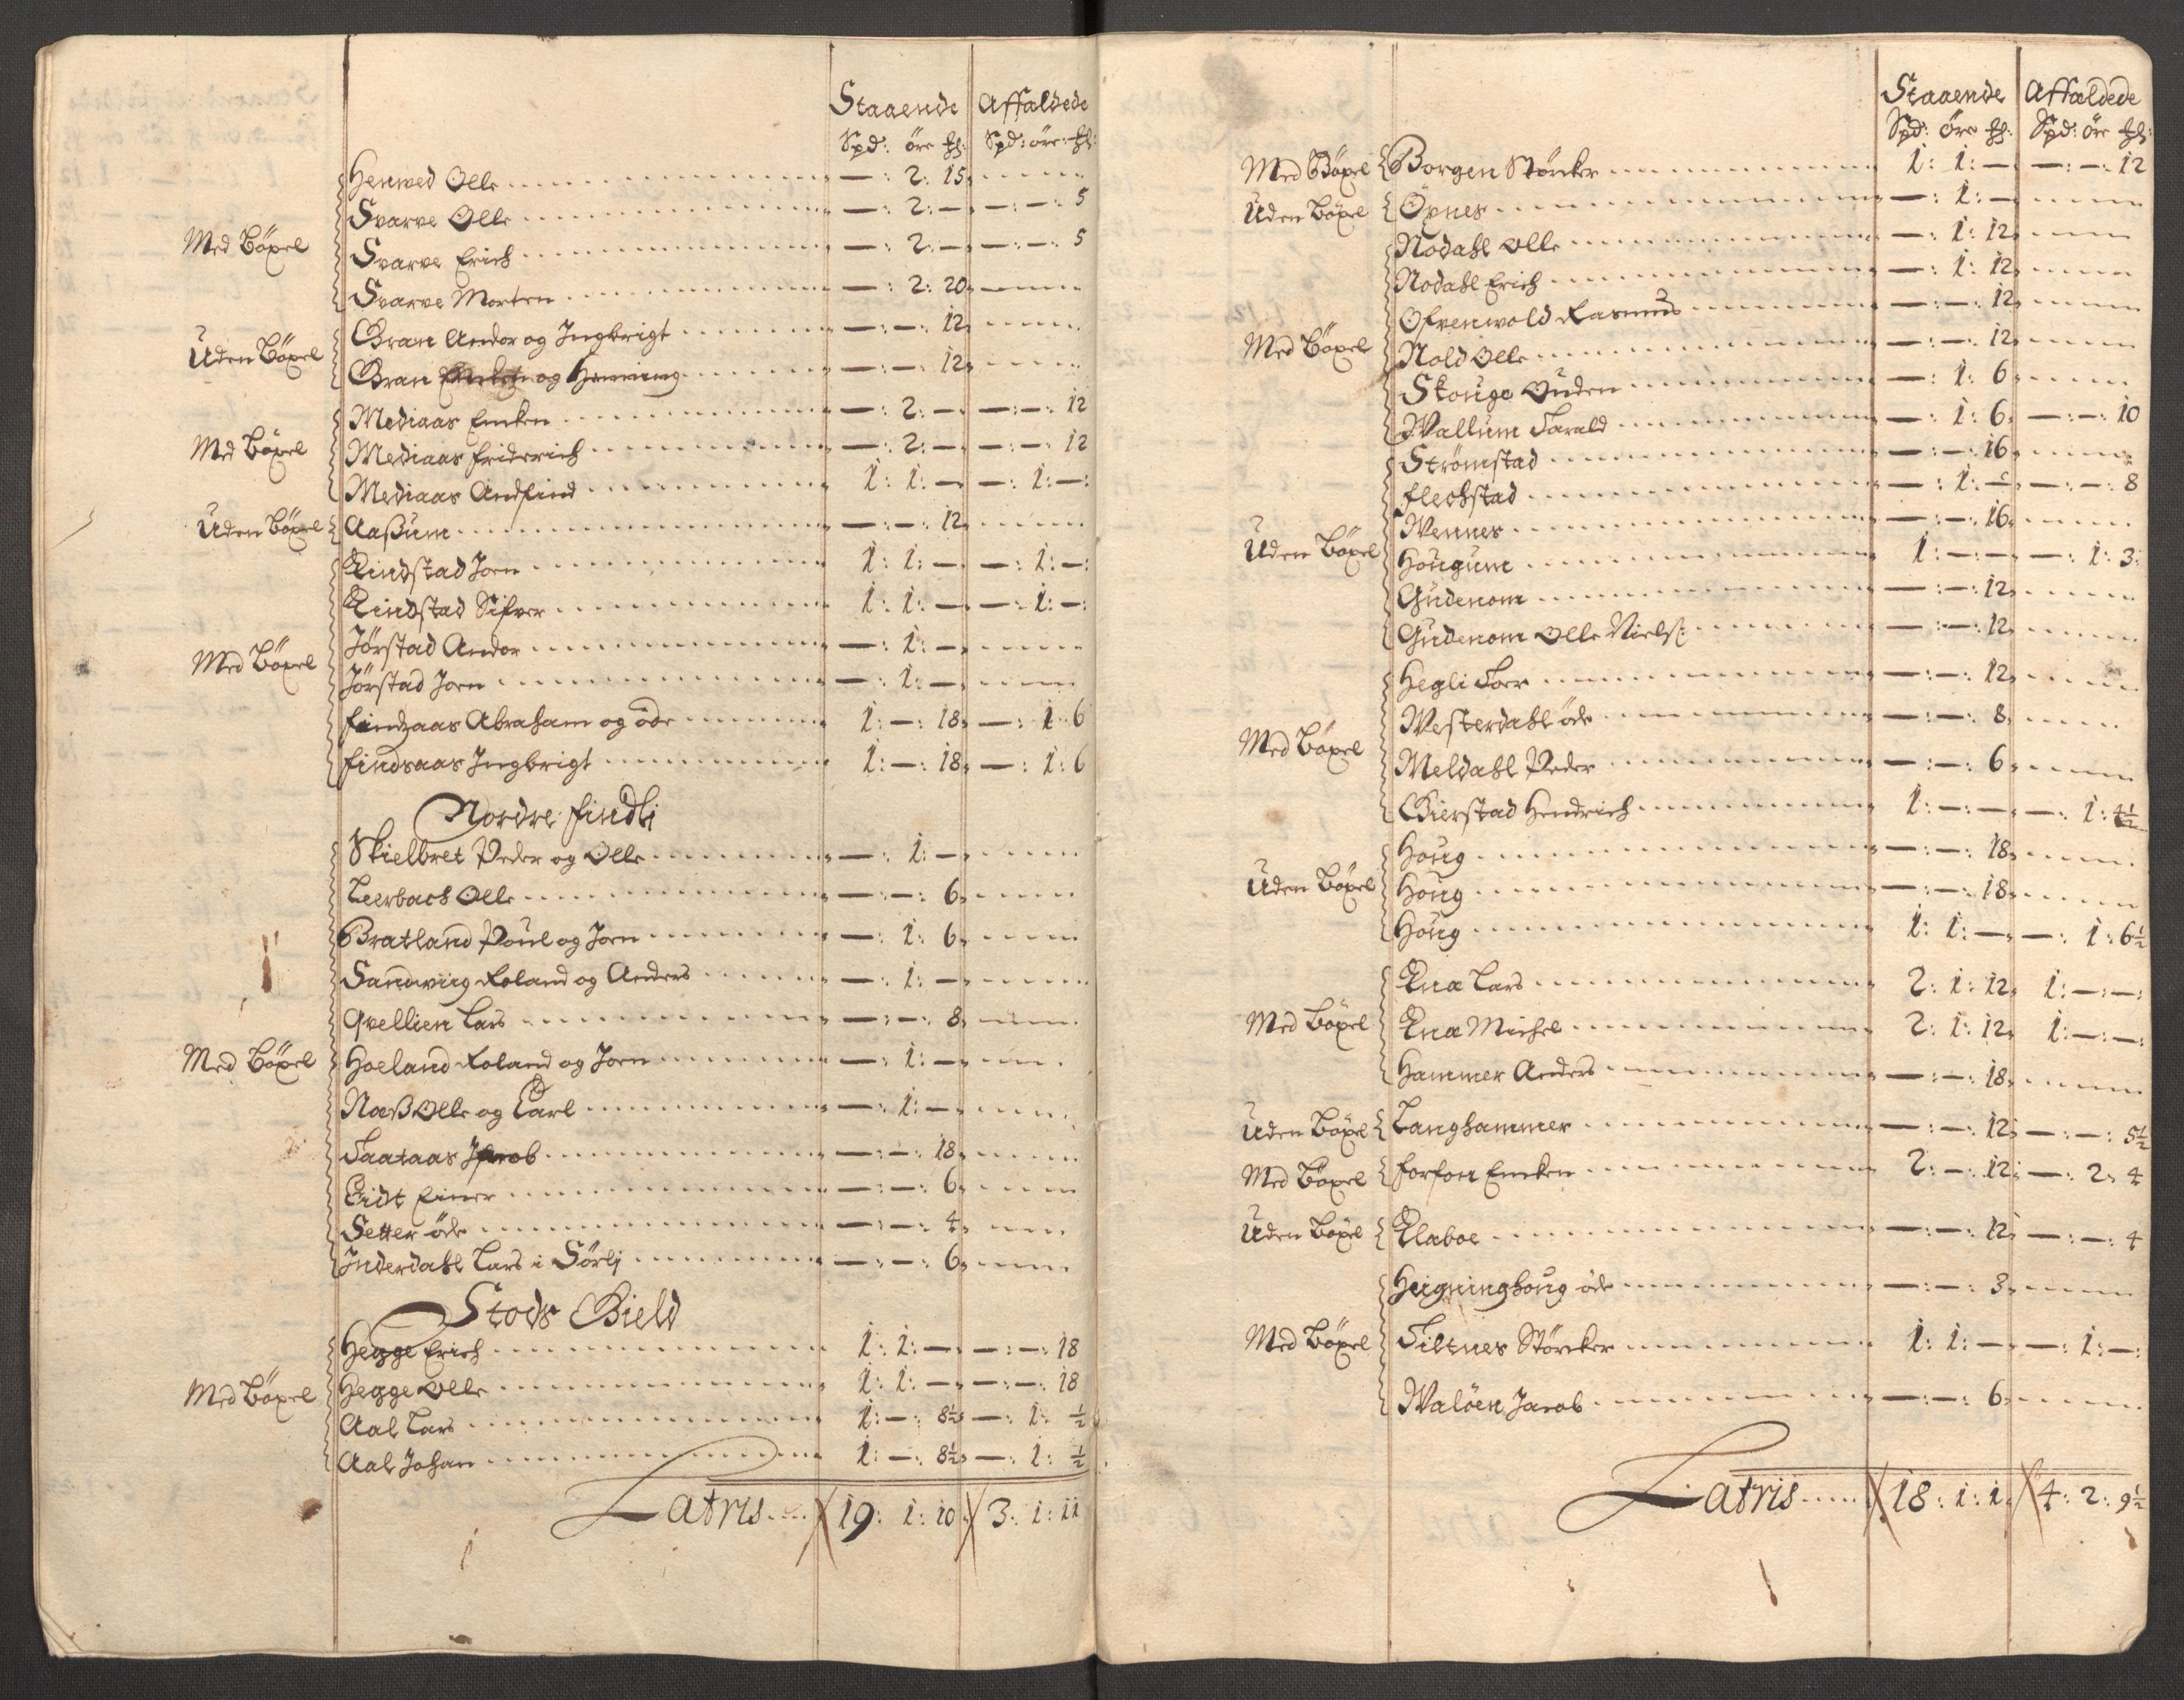 Staaende Affældede
Spd: öre ß: Spd: öre: ß:
Henwed Olle — : 2: 15
Svarve Olle — : 2: — — : — : 5
Med Böxel Svarve Erich — : 2: — — : — : 5
Svarve Morten — : 2: 20
Gran Andor og Ingbrigt — : — : 12
Uden Böxel
Gran og Henning — : — : 12
Mediaas Emken — : 2: — — : — : 12
Med Böxel Mediaas Friderich — : 2: — — : — : 12
Mediaas Andfind 1: 1: — — : 1: — :
Uden Böxel Aaßum — : — : 12
Kindstad Joen 1: 1: — — : 1: — :
Kindstad Sifver 1: 1: — — : 1: — :
Jörstad Andor — : 1: —
Med Böxel
Jörstad Joen — : 1: —
Findsaas Abraham og öde 1: — : 18 — : 1: 6
Findsaas Ingbrigt 1: — : 18 — : 1: 6
Nordre Findli
Skielbret Peder og Olle — : 1: —
Leerbach Olle — : — : 6
Bratland Poul og Joen — : 1: 6
Sandwiig Roland og Anders — : 1: —
Qvellien Lars — : — : 8
Med Böxel Hoeland Roland og Joen — : 1: —
Naß Olle og Carl — : 1: —
Taataas Jacob — : — : 18
Eidt Einer — : — : 6
Setter öde — : — : 4
Inderdahl Lars i Sörlj — : — : 6
Stods Gield
Hegge Erich 1: 1: — — : — : 18
Med Böxel Hegge Olle 1: 1: — — : — : 18
Aal Lars 1: — : 8½ — : 1: ½
Aal Johan 1: — : 8½ — : 1: ½
Latris 19: 1: 10 3: 1: 11
Staaende Affældede
Spd: öre ß: Spd: öre ß:
Med Böxel Borgen Störcker 1: 1: — — : — : 12
Uden Böxel Öxnes — : 1: —
Nodahl Olle — : 1: 12
Nodahl Erich — : 1: 12
Ofvenwold Rasmus — : — : 12
Med Böxel Nold Olle — : — : 12
Skouge Ouden — : 1: 6
Wallum Harald — : 1: 6 — : — : 10
Strömstad — : — : 16
Flechstad — : 1: — — : — : 8
Wennes — : — : 16
Uden Böxel Hougum 1: — : — — : 1: 3:
Gudenom — : — : 12
Gudenom Olle Niels: — : — : 12
Hegli Toer — : — : 12
Westerdahl öde — : — : 8
Med Böxel
Meldahl Peder — : — : 6
Gierstad Hendrich 1: — : — — : 1: 4½
Houg — : — : 18
Uden Böxel Houg — : — : 18
Houg 1: 1: — — : 1: 6½
Qua Lars 2: 1: 12 1: — : — :
Med Böxel Qua Michel 2: 1: 12 1: — : — :
Hammer Anders — : — : 18
Uden Böxel Langhammer — : — : 12 — : — : 5½
Med Böxel Forfon Emken 2: — : 12 — : 2: 4
Uden Böxel Elaboe — : — : 12 — : — : 4
Heigninghoug öde — : — : 3
Med Böxel Tiltnes Störcker 1: 1: — — : 1: — :
Walöen Jacob — : — : 6
Latris 18: 1: 1: 4: 2: 9½